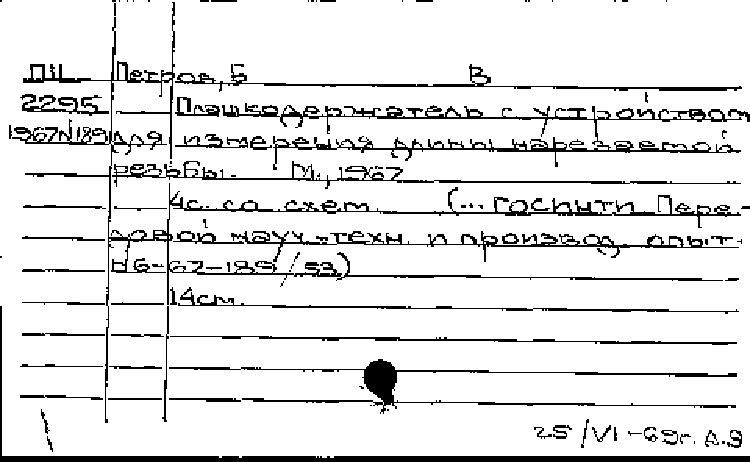 ПiL Петров, Б В
2295 Плашкодержатель с устройством
1967N189 для измерения длины нарезаемой
резьбы. М., 1967
4с. со схем. (... ГОСИНТИ Пере-
довой науч.-техн. и производ. опыт
N6-67-189/53)
14см.
25/VI-69г. А.З